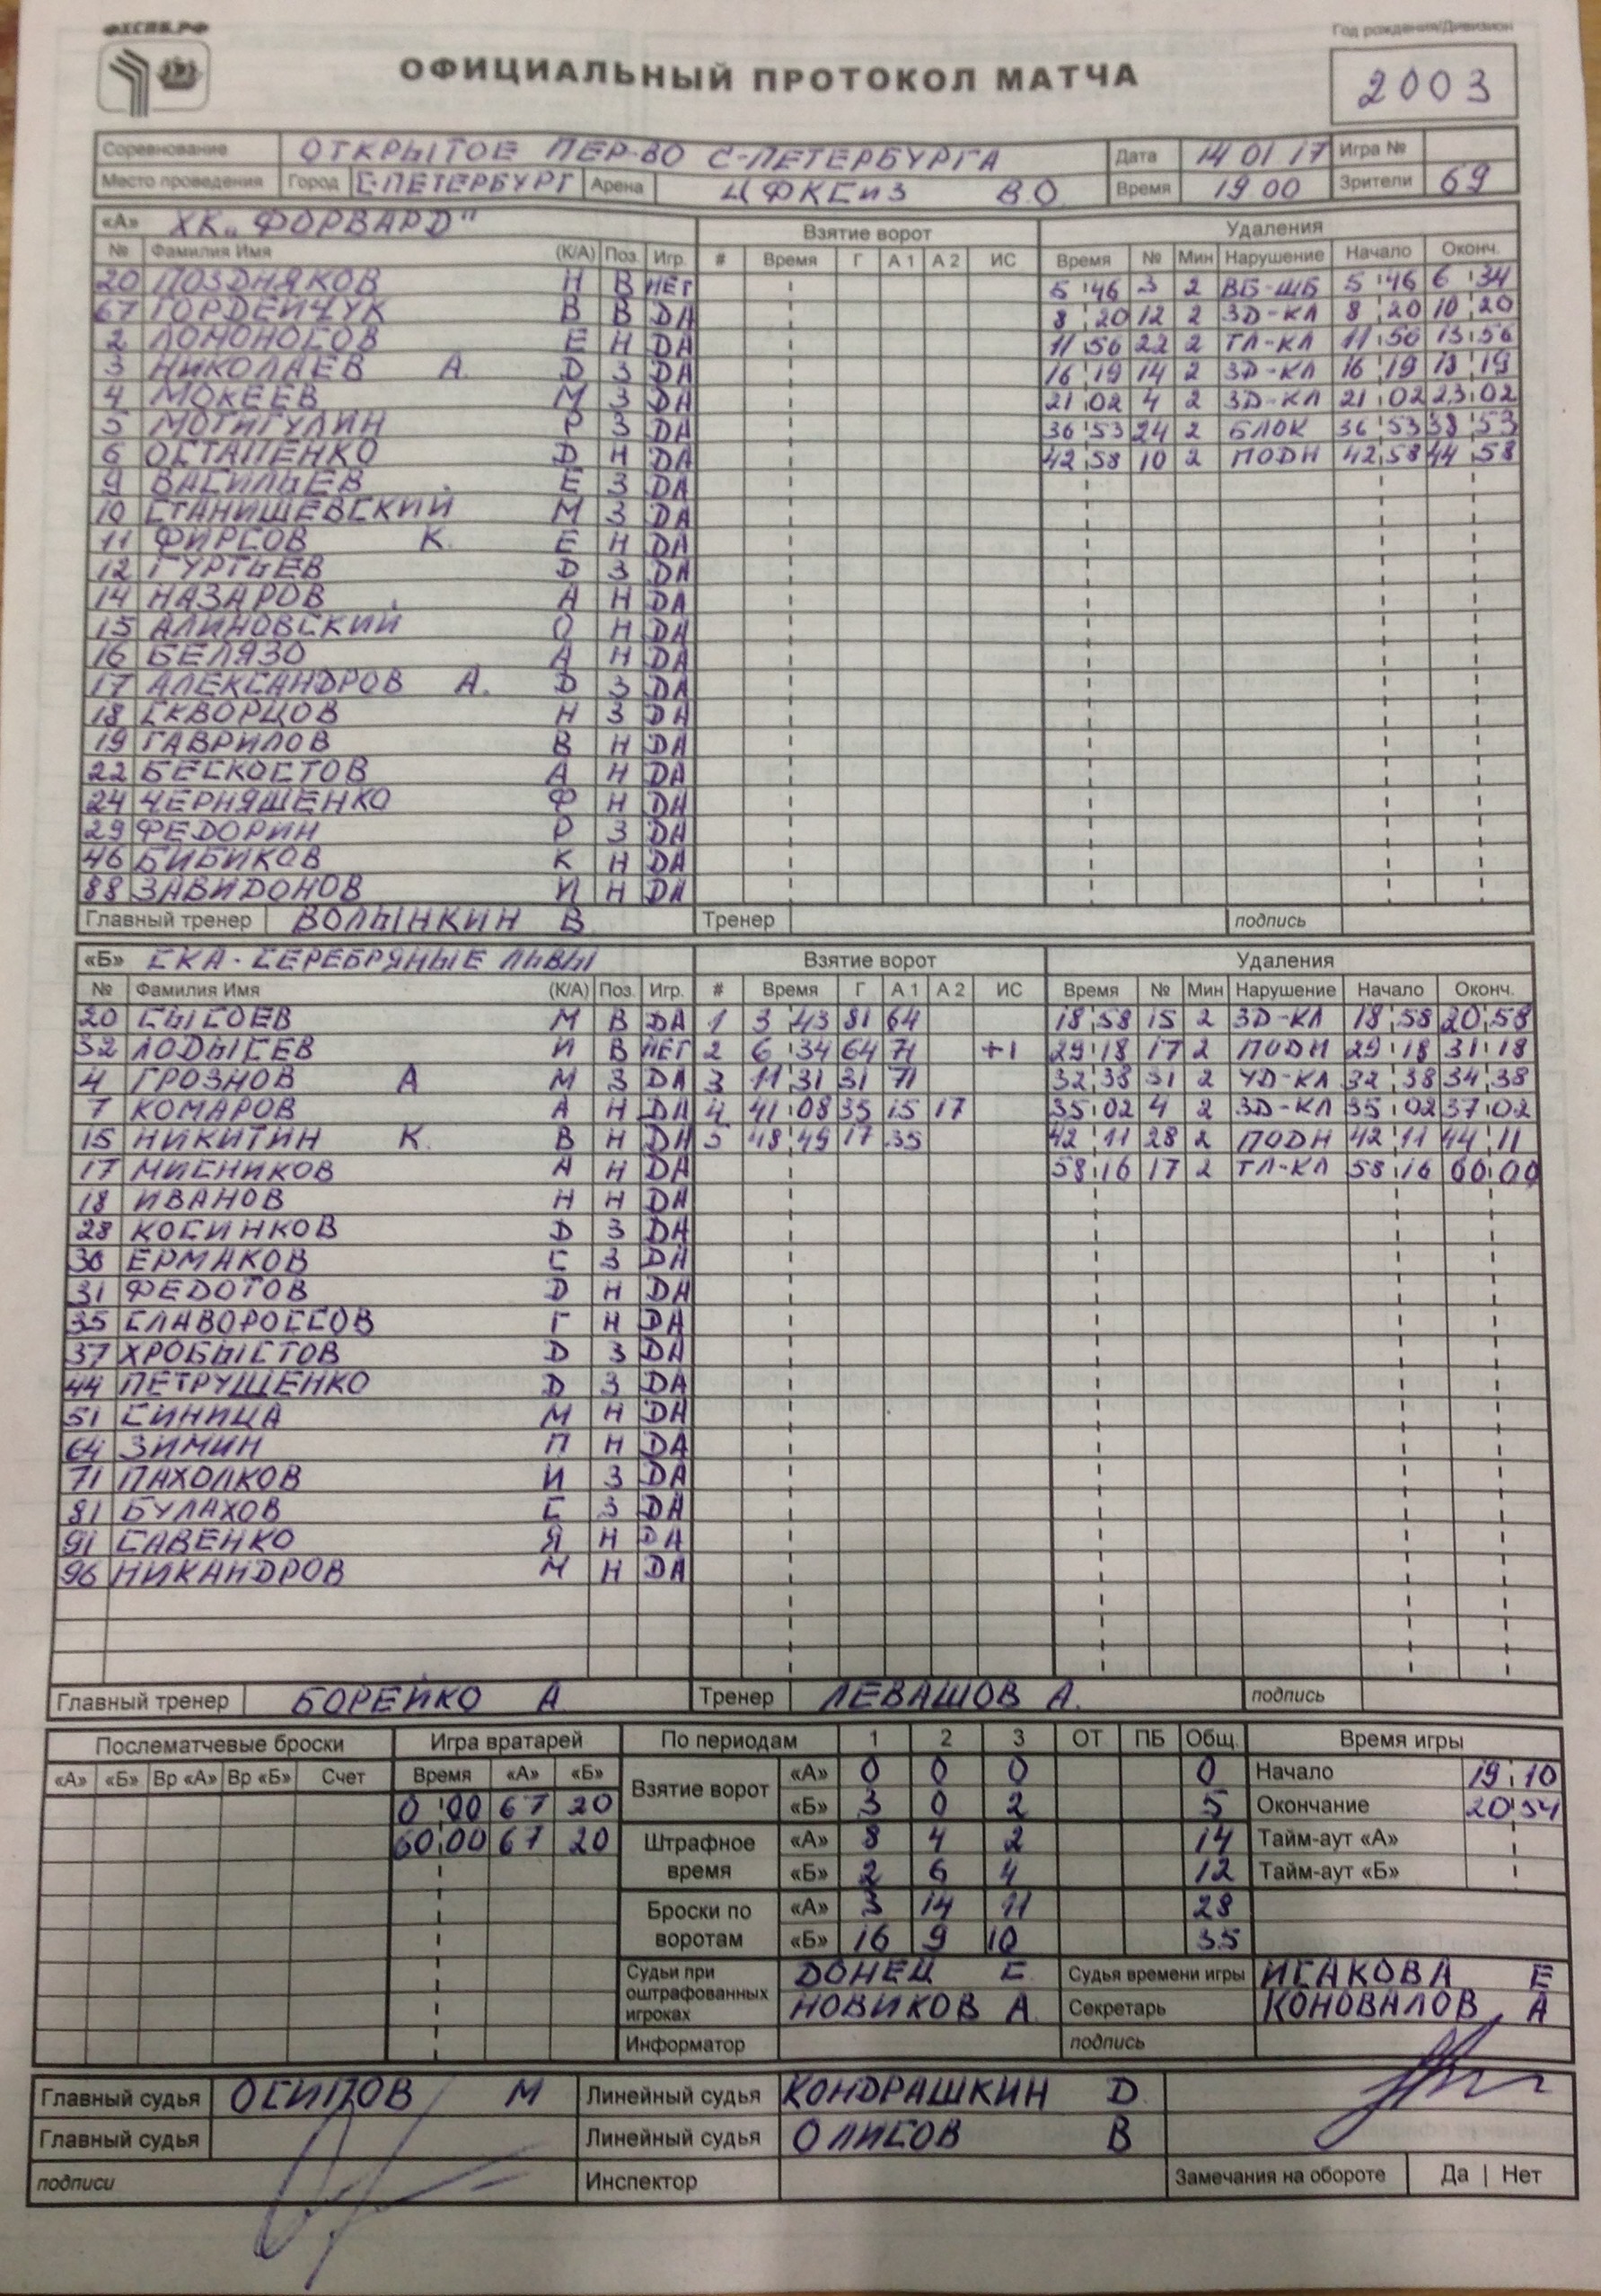 ФХСПБ.РФ
Год рождения/Дивизион
ОФИЦИАЛЬНЫЙ ПРОТОКОЛ МАТЧА
2003
Соревнование ОТКРЫТОЕ ПЕР-ВО С-ПЕТЕРБУРГА Дата 14 01 17 Игра №
Место проведения Город С-ПЕТЕРБУРГ Арена ЦФКСиЗ ВО Время 19.00 Зрители 69
«А» ХК „ФОРВАРД" Взятие ворот Удаления
№ Фамилия Имя (К/А) Поз. Игр. # Время Г А 1 А 2 ИС Время № Мин Нарушение Начало Оконч.
20 ПОЗДНЯКОВ Н В НЕТ 5 46 3 2 ВБ-ШБ 5 46 6 34
67 ГОРДЕЙЧУК В В DА 8 20 12 2 ЗD-КЛ 8 20 10 20
2 ЛОМОНОСОВ Е Н DА 11 56 22 2 ТЛ-КЛ 11 56 13 56
3 НИКОЛАЕВ А. D З DА 16 19 14 2 ЗD-КЛ 16 19 18 19
4 МОКЕЕВ М З DА 21 02 4 2 ЗD-КЛ 21 02 23 02
5 МОТИГУЛИН Р З DА 36 53 24 2 БЛОК 36 53 38 53
6 ОСТАПЕНКО D Н DА 42 58 10 2 ПОDН 42 58 44 58
9 ВАСИЛЬЕВ Е З DА
10 СТАНИШЕВСКИЙ М З DА
11 ФИРСОВ К. Е Н DА
12 ГУРТЬЕВ D З DА
14 НАЗАРОВ А Н DА
15 АЛИНОВСКИЙ О Н DА
16 БЕЛЯЗО А Н DА
17 АЛЕКСАНDРОВ А. D З DА
18 СКВОРЦОВ Н З DА
19 ГАВРИЛОВ В Н DА
22 БЕСКОСТОВ А Н DА
24 ЧЕРНЯШЕНКО Ф Н DА
29 ФЕDОРИН Р З DА
46 БИБИКОВ К Н DА
88 ЗАВИDОНОВ И Н DА
Главный тренер ВОЛЫНКИН В Тренер подпись
«Б» СКА-СЕРЕБРЯНЫЕ ЛЬВЫ Взятие ворот Удаления
№ Фамилия Имя (К/А) Поз. Игр. # Время Г А 1 А 2 ИС Время № Мин Нарушение Начало Оконч.
20 СЫСОЕВ М В DА 1 3 43 81 64 18 58 15 2 ЗD-КЛ 18 58 20 58
32 ЛОDЫСЕВ И В НЕТ 2 6 34 64 71 +1 29 18 17 2 ПОDН 29 18 31 18
4 ГРОЗНОВ А М З DА 3 11 31 31 71 32 38 31 2 УD-КЛ 32 38 34 38
7 КОМАРОВ А Н DА 4 41 08 35 15 17 35 02 4 2 ЗD-КЛ 35 02 37 02
15 НИКИТИН К. В Н DА 5 48 49 17 35 42 11 28 2 ПОDН 42 11 44 11
17 МИСНИКОВ А Н DА 58 16 17 2 ТЛ-КЛ 58 16 60 00
18 ИВАНОВ Н Н DА
28 КОСИНКОВ D З DА
30 ЕРМАКОВ С З DА
31 ФЕDОТОВ D Н DА
35 СЛАВОРОССОВ Г Н DА
37 ХРОБЫСТОВ D З DА
44 ПЕТРУЩЕНКО D З DА
51 СИНИЦА М Н DА
64 ЗИМИН П Н DА
71 ПАХОЛКОВ И З DА
81 БУЛАХОВ С З DА
91 САВЕНКО Я Н DА
96 НИКАНDРОВ М Н DА
Главный тренер БОРЕЙКО А Тренер ЛЕВАШОВ А. подпись
Послематчевые броски Игра вратарей По периодам 1 2 3 ОТ ПБ Общ. Время игры
«А» «Б» Вр «А» Вр «Б» Счет Время «А» «Б» Взятие ворот «А» 0 0 0 0 Начало 19 10
0 00 67 20 «Б» 3 0 2 5 Окончание 20 54
60 00 67 20 Штрафное время «А» 8 4 2 14 Тайм-аут «А»
«Б» 2 6 4 12 Тайм-аут «Б»
Броски по воротам «А» 3 14 11 28
«Б» 16 9 10 35
Судьи при оштрафованных игроках ДОНЕЦ Е Судья времени игры ИСАКОВА Е
НОВИКОВ А. Секретарь КОНОВАЛОВ А
Информатор подпись
Главный судья ОСИПОВ М Линейный судья КОНDРАШКИН D.
Главный судья Линейный судья ОЛИСОВ В
подписи Инспектор Замечания на обороте Да | Нет